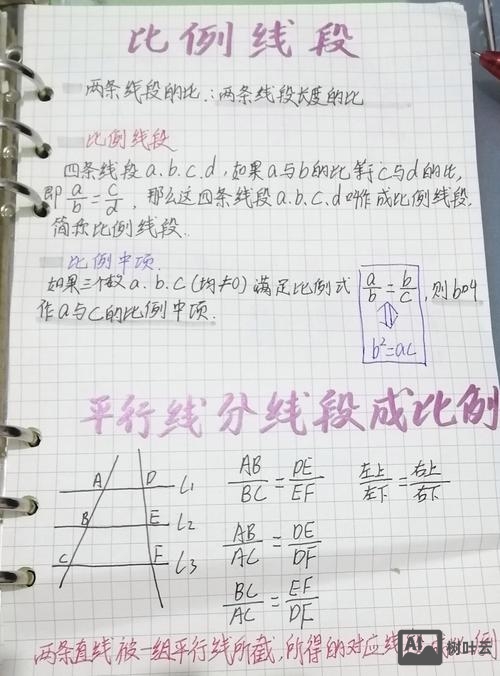 比例线段
两条线段的比：两条线段长度的比
比例线段
四条线段a.b.c.d，如果a与b的比等于c与d的比，
即a/b=c/d，那么这四条线段a.b.c.d叫作成比例线段，
简称比例线段.
比例中项
如果三个数a.b.c(均≠0)满足比例式 a/b=b/c，则b叫
作a与c的比例中项.
b²=ac
平行线分线段成比例
A D l1
B E l2
C F l3
AB/BC=DE/EF 左上/左下=右上/右下
AB/AC=DE/DF
BC/AC=EF/DF
两条直线被一组平行线所截，所得的对应线 例
AI 树叶云